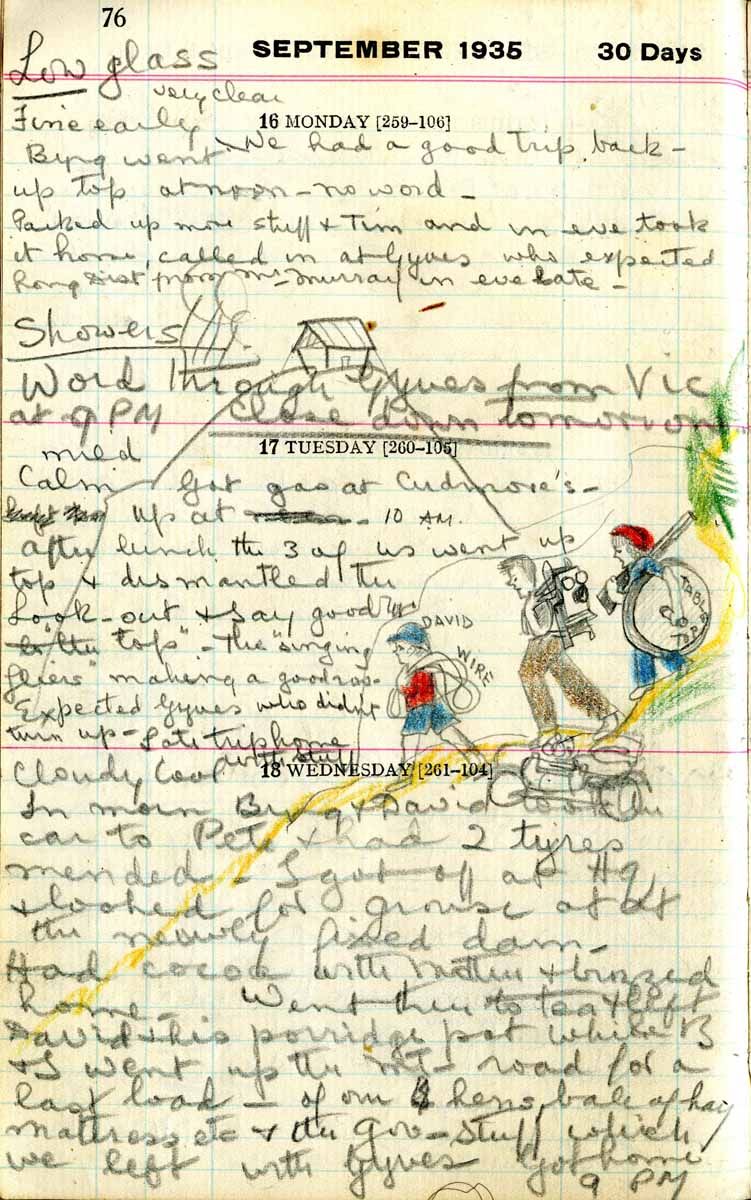 76
SEPTEMBER 1935 30 Days
Low glass
very clear
Fine early
16 MONDAY [259–106]
Byng went We had a good trip back –
up top at noon – no word –
Packed up more stuff & Tim and in eve took
it home, called in at Gyves who expected
long dist from Mr Murray in eve late –
Showers
Word through Gyves from Vic
at 9 PM Close down tomorrow
mild
17 TUESDAY [260–105]
Calm Got gas at Cudmore's –
up at 10 AM.
after lunch the 3 of us went up
top & dismantled the
Look-out & say good
"top" – The "singing
fliers" making a
Expected Gyves who didn't
turn up – Late trip home
with stuff
DAVID
WIRE
TABLE
TOP
Cloudy Cool
18 WEDNESDAY [261–104]
In morn Byng & David took the
car to Pete & had 2 tyres
mended – I got off at HQ
& looked for grouse at
the newly fixed dam –
Had cocoa with Mother & buzzed
home – Went then to tea & left
David & his porridge pot while B
& I went up the mt – road for a
last load – of our 4 hens, bale of hay
mattress etc & the Gov – stuff which
we left with Gyves Got home
9 PM